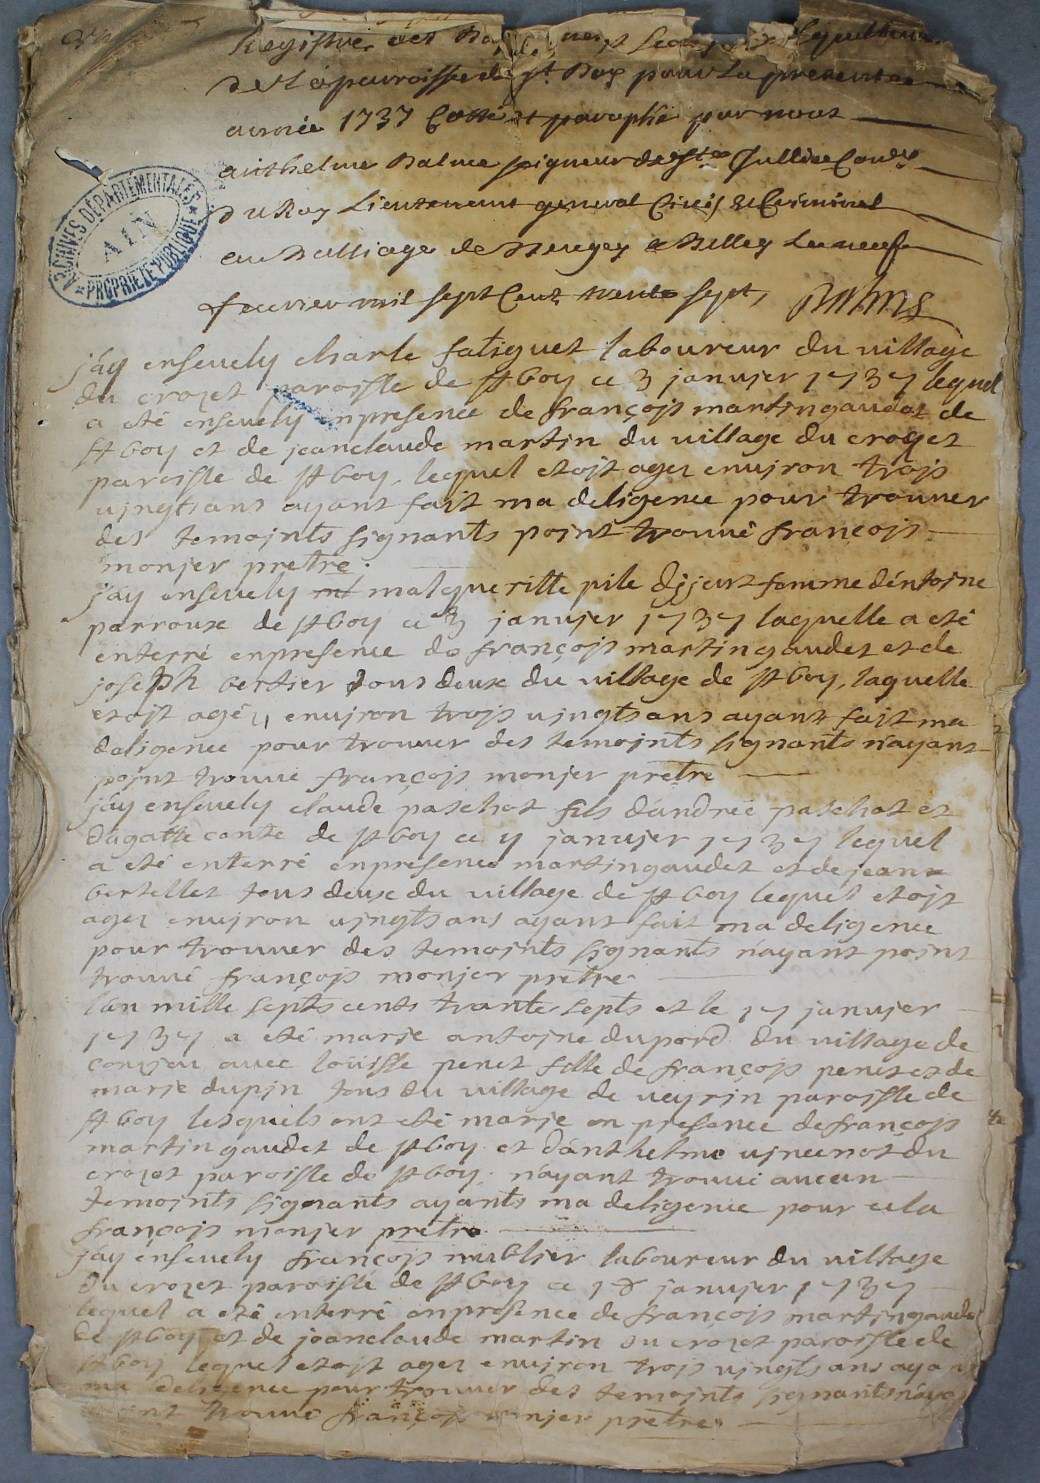 Registre des
de la parroisse de St Boy pour la presente
année 1737 Cotté et paraphé par nous
anthelme Balme seigneur de Ste Jullie Conser
du Roy Lieutenant general Civil & Criminel
au Balliage de Beugey a Belley Le neuf
feuvrier mil sept Cent trente sept,
ARCHIVES DÉPARTEMENTALES
AIN
PROPRIÉTÉ PUBLIQUE
j'ay ensevely charle faliguet laboureur du village
du crozet paroisse de st boy ce 3 janvjer 1737 lequel
a eté ensevely enpresence de françojs martingaudet de
st boy et de jeanclaude martin du village du crozet
paroisse de st boy, lequel etojt agez environ trojs
vjngts ans ayant fajt ma deligence pour trouver
des temojnts signants pojnt trouvé françojs
monjer pretre.
j'ay ensevely malgueritte pile femme d'éntojne
parroux de st boy ce 3 janvjer 1737 laquelle a eté
enterré enpresence de françojs martingaudet et de
joseph bertier tous deux du village de st boy, laquelle
etojt agé envjron trojs vjngts ans ayant fajt ma
deligence pour trouver des temojnts signants n'ayant
pojnt trouvé françojs monjer pretre
j'ay ensevely claude paschot fils d'andrée paschot et
d'agatte conte de st boy ce y janvjer 1737 lequel
a eté enterré enpresence martingaudet et de jean
bertellet tous deux du village de st boy lequel etojt
agez envjron vjngts ans ayant fajt ma deligence
pour trouver des temojnts signants n'ayant pojnt
trouvé françojs monjer pretre
l'an mille septs cents trante septs et le 17 janvjer
1737 a eté marje antojne dupord du village de
conzjeu avec louisse penet fille de françojs penet et de
marje dupin tous du village de veyrin paroisse de
st boy lesquels ont eté marje en presence de françojs
martingaudet de st boy et d'anthelme vjncenot du
crozet paroisse de st boy n'ayant trouvé aucun
temojnts signants ayants ma deligence pour cela
françojs monjer pretre
j'ay ensevely françojs mublier laboureur du village
du crozet paroisse de st boy ce 18 janvjer 1737
lequel a eté enterré enpresence de françojs martingaudet
de st boy et de jeanclaude martin du crozet paroisse de
st boy lequel etojt agez envjron trojs vjngts ans ayant
ma deligence pour trouver des temojnts signants n'aya
pojnt trouvé françojs monjer pretre